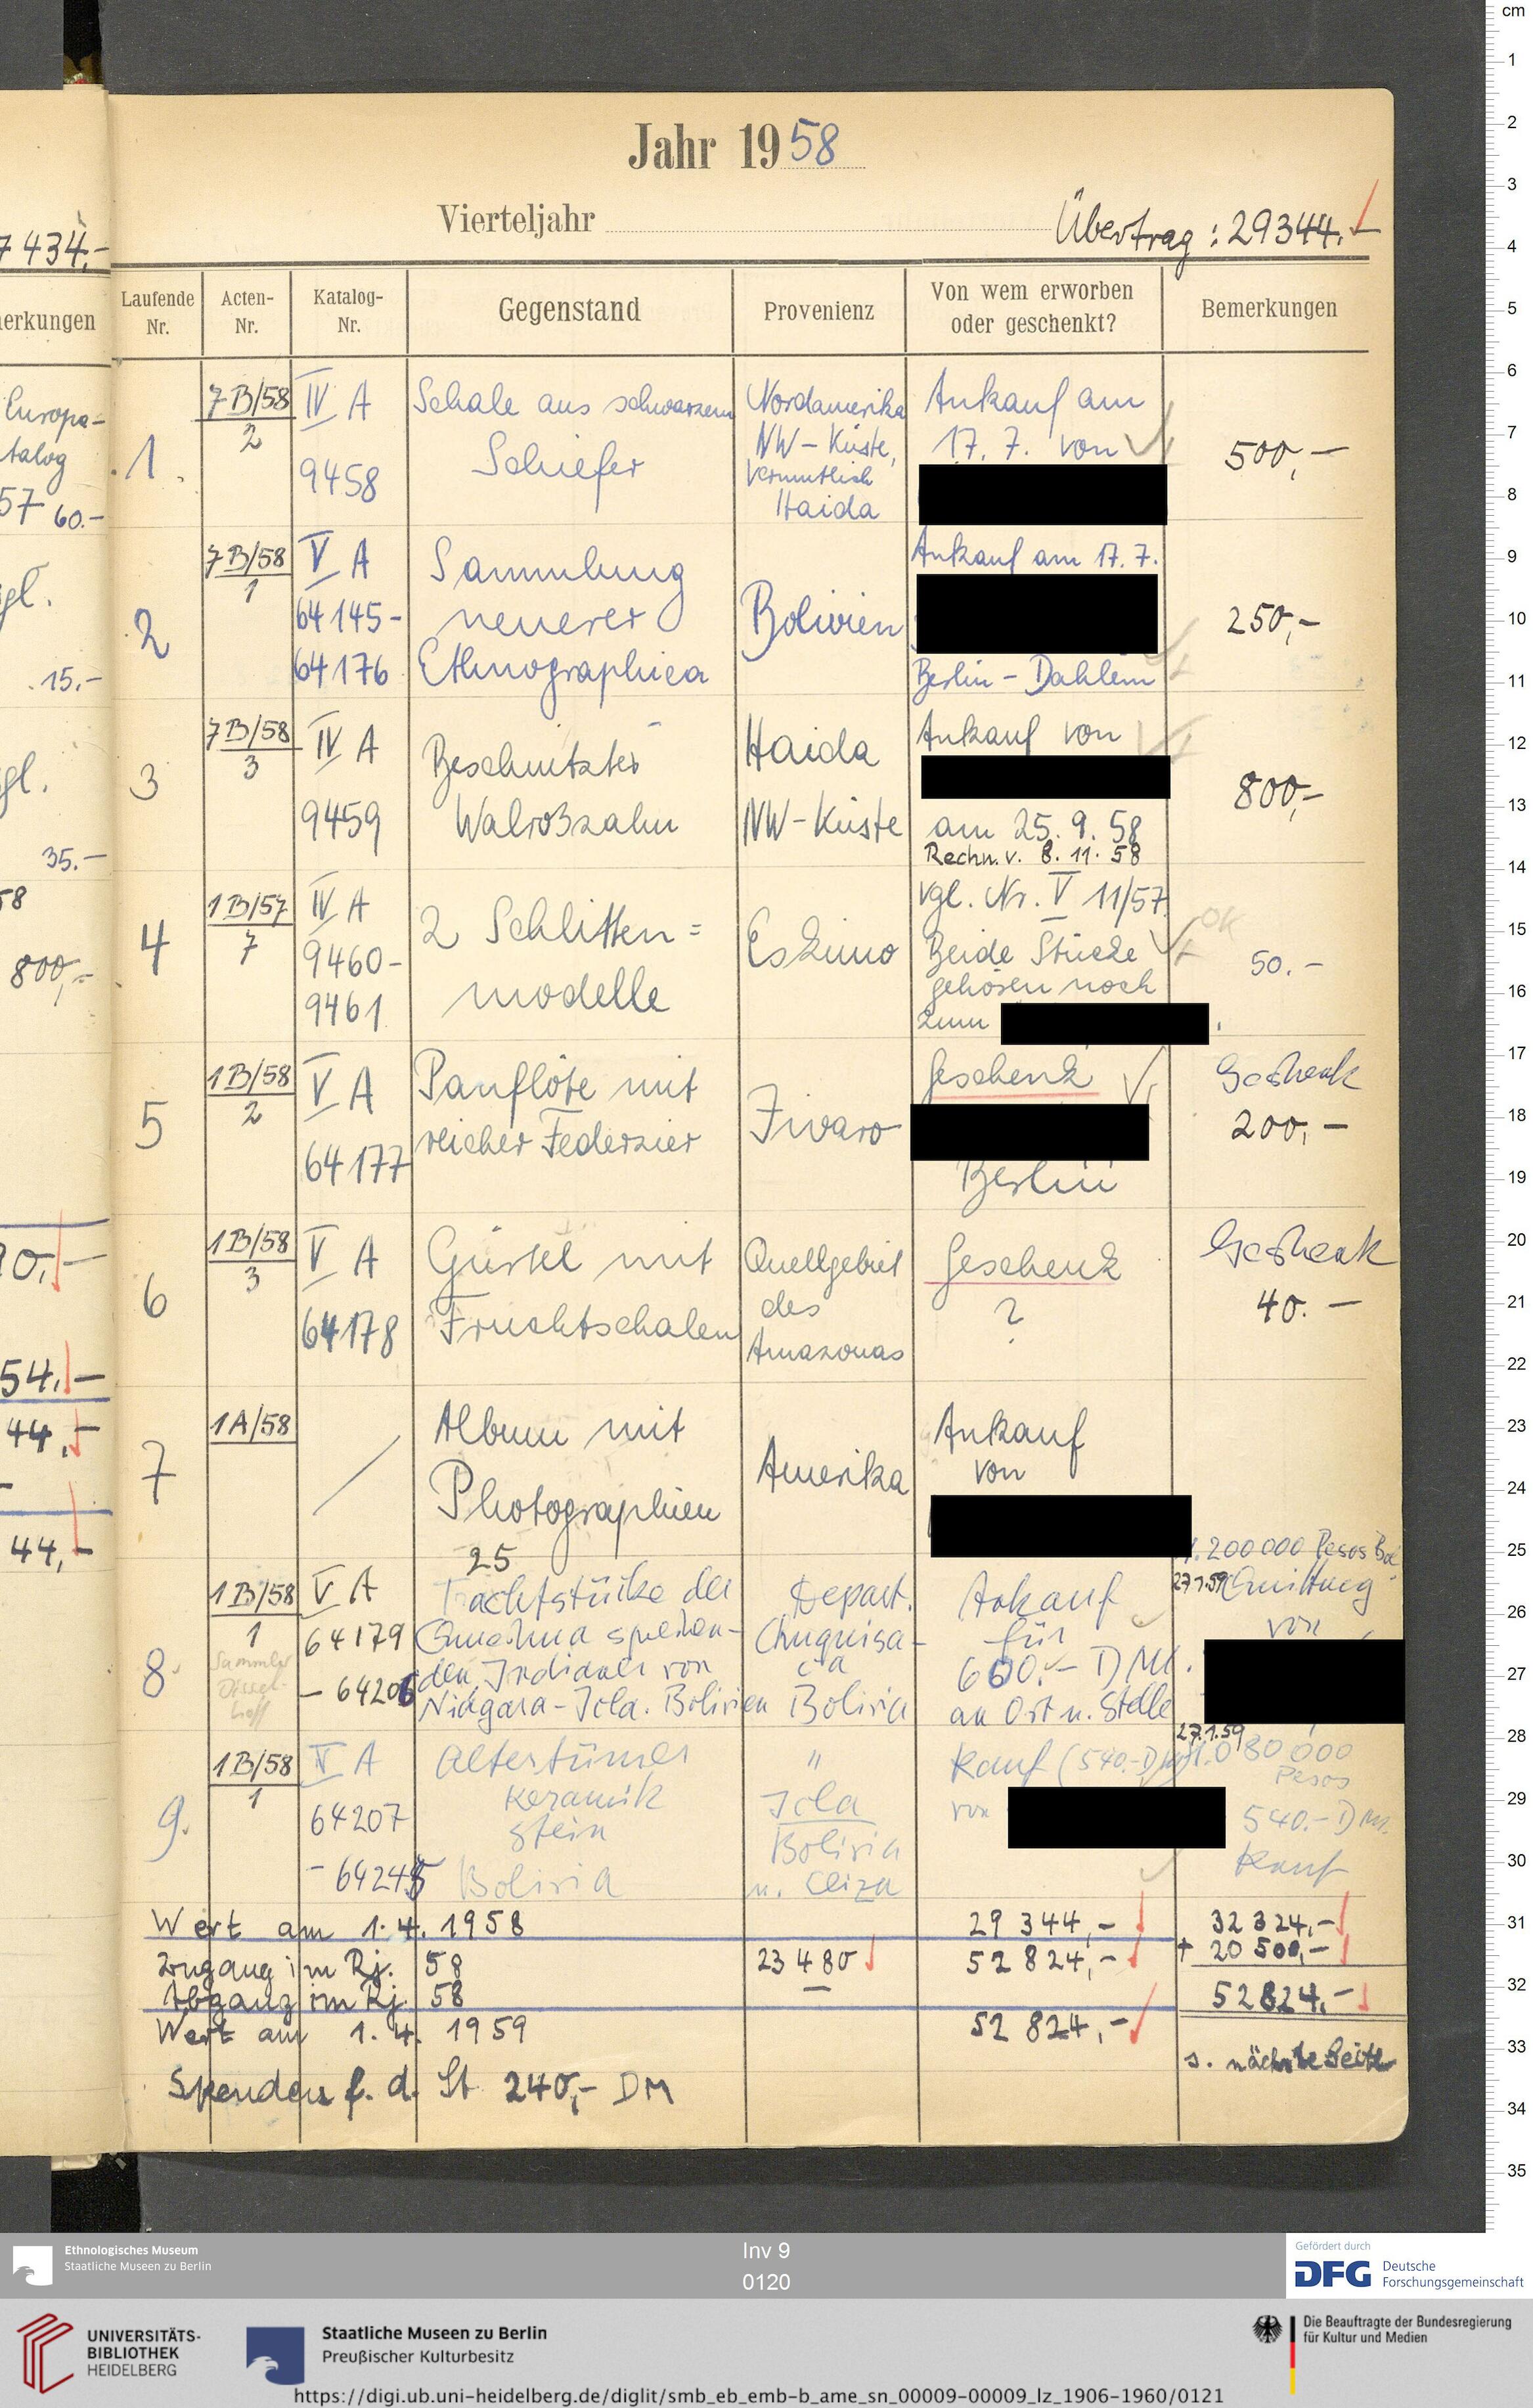 Jahr 1958
Vierteljahr
Übertrag: 29344.-
7434.-
Laufende Nr.
Acten-Nr.
Katalog-Nr.
Gegenstand
Provenienz
Von wem erworben oder geschenkt?
Bemerkungen
erkungen
1.
7B/58
2
IV A
9458
Schale aus schwarzem
Schiefer
Nordamerika
NW-Küste,
vermutlich
Haida
Ankauf am
17. 7. von
500,-
2
7B/58
1
V A
64145-
64176
Sammlung
neuerer
Ethnographica
Bolivien
Ankauf am 17. 7.
Berlin-Dahlem
250,-
3
7B/58
3
IV A
9459
Beschnitzter
Walroßzahn
Haida
NW-Küste
Ankauf von
am 25. 9. 58
Rechn. v. 8. 11. 58
800,-
4
1B/57
7
IV A
9460-
9461
2 Schlitten=
modelle
Eskimo
vgl. Nr. V 11/57
Beide Stücke
gehören noch
zum
OK
50.-
5
1B/58
2
V A
64177
Panflöte mit
reicher Federzier
Jivaro
Geschenk
Berlin
Geschenk
200,-
6
1B/58
3
V A
64178
Gürtel mit
Fruchtschalen
Quellgebiet
des
Amazonas
Geschenk
?
Geschenk
40.-
7
1A/58
/
Album mit
Photographien
Amerika
Ankauf
von
8
1B/58
1
Sammler
V A
64179
- 64206
25
Trachtstücke der
Quechua sprechen-
den Indianer von
Niagara-Icla. Bolivien
Depart.
Chuquisa-
ca
Bolivia
Ankauf
für
600.- DM.
an Ort u. Stelle
1.200000 Pesos Bol.
27.1.59 Quittung
von
9.
1B/58
1
V A
64207
- 64245
Altertümer
Keramik
Stein
Bolivia
"
Icla
Bolivia
u. Cliza
Kauf (540.- DM)
von
27.1.59
1.080 000
Pesos
540.- DM.
Kauf
Wert am 1. 4. 1958
29 344,-
32 324,-
Zugang im Rj. 58
23 480
52 824,-
+ 20 500,-
Abgang im Rj. 58
—
52824.-
Wert am 1. 4. 1959
52 824,-
s. nächste Seite
Spenden f. d. St 240,- DM
Europa-
talog
57 60.-
gl.
15.-
gl.
35.-
58
800,-
54,-
44,-
44,-
cm
1
2
3
4
5
6
7
8
9
10
11
12
13
14
15
16
17
18
19
20
21
22
23
24
25
26
27
28
29
30
31
32
33
34
35
Ethnologisches Museum
Staatliche Museen zu Berlin
Inv 9
0120
Gefördert durch
DFG Deutsche
Forschungsgemeinschaft
UNIVERSITÄTS-
BIBLIOTHEK
HEIDELBERG
Staatliche Museen zu Berlin
Preußischer Kulturbesitz
Die Beauftragte der Bundesregierung
für Kultur und Medien
https://digi.ub.uni-heidelberg.de/diglit/smb_eb_emb-b_ame_sn_00009-00009_lz_1906-1960/0121